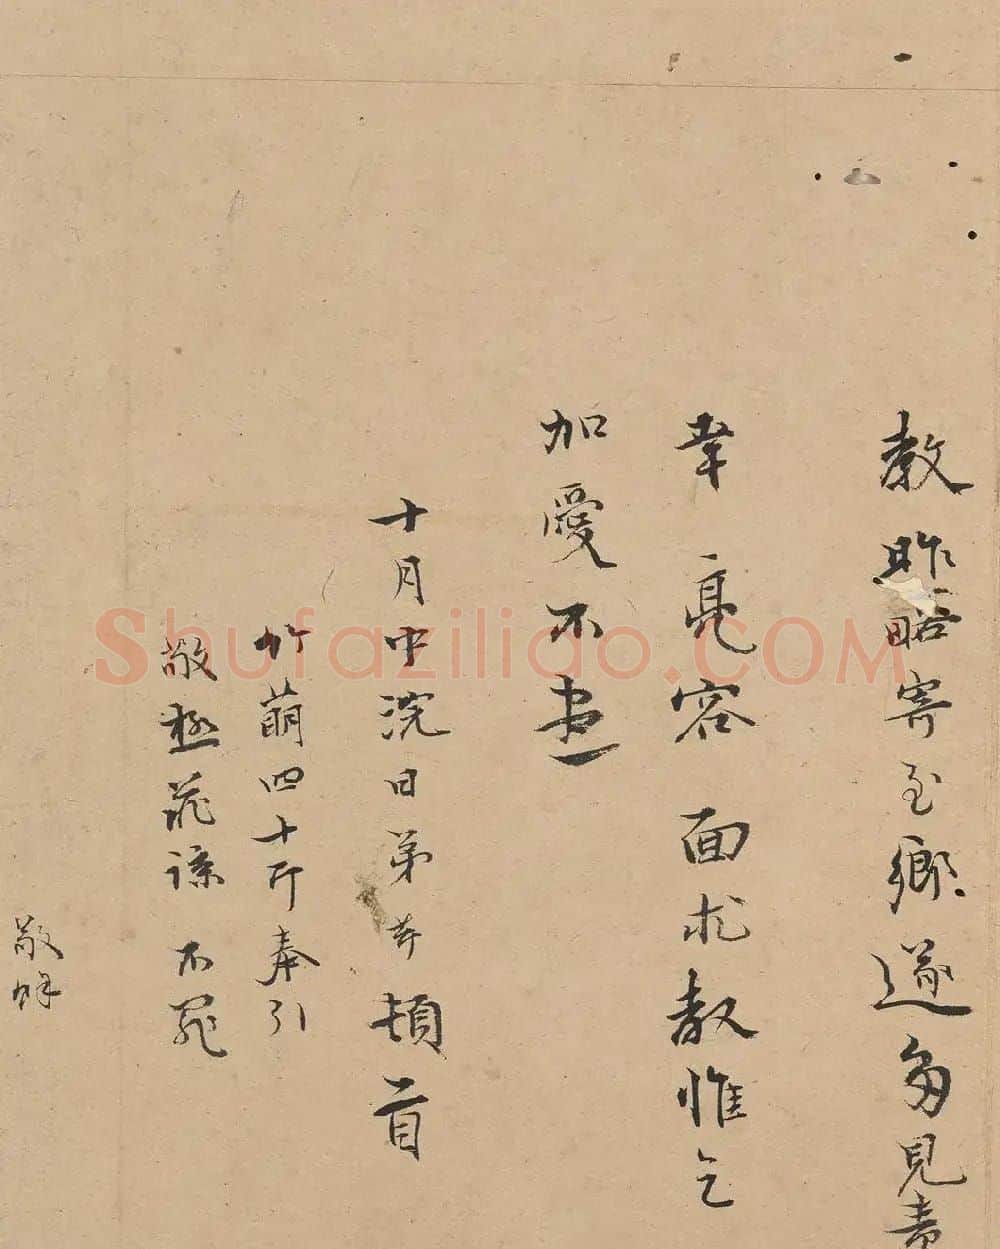 教昨寄至鄉遂多見責
幸亮容面求教惟乞
加愛不盡
十月中浣日弟頓首
竹萌四十斤奉引
敬極菲諒不罪
敬
Shufaziliao.COM